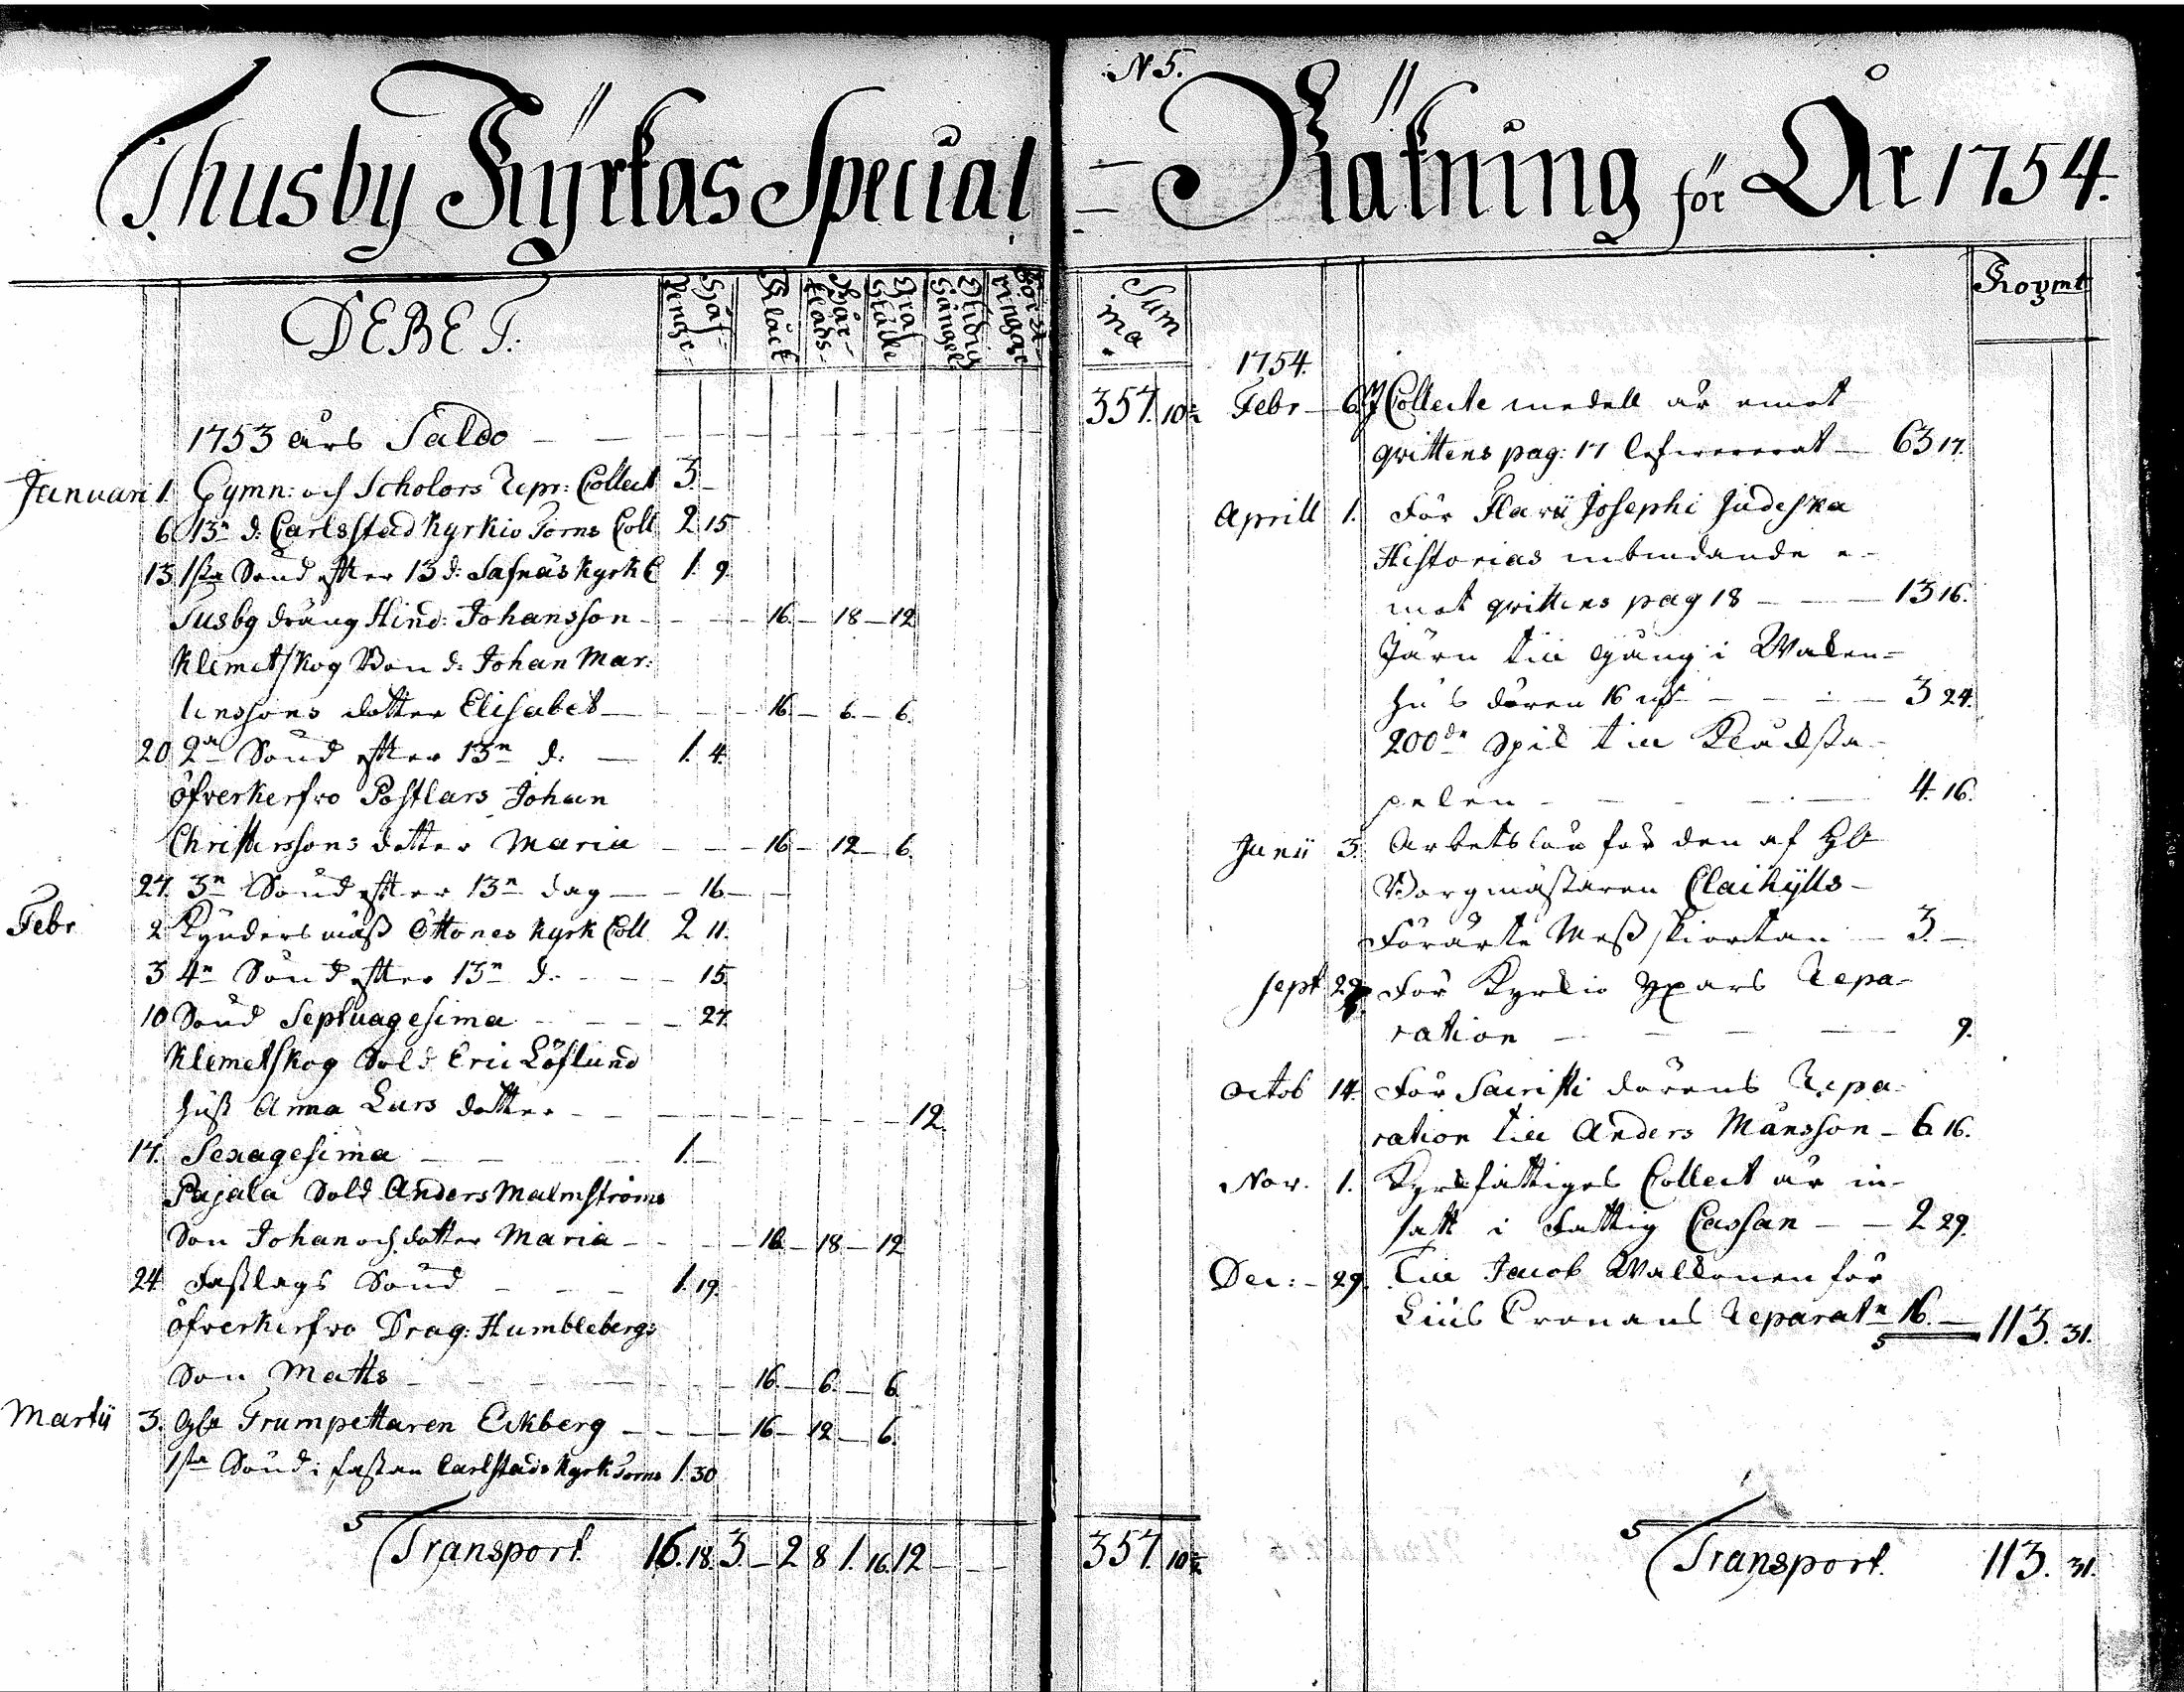 Thusby Kyrkas Special
DEBET.
Håf-
Penge-
Klåck
Bår-
Kläds-
Graf
Ställe
Stidig
Gångel
Förär
ringar
1753 års Saldo
Januari 1. Gymn: och Scholors Repr: Collect 3. –
6 13n d: Carlsstad Kyrkio Torns Coll 2 15
13 1sta Sönd efter 13 d: Safnäs Kyrk C 1. 9.
Tusby dräng Hind: Johansson – 16. – 18 – 12
Klemetskog Bon d: Johan Mar:
tinssons dotter Elisabet – 16 – 6 – 6.
20 2a Sönd efter 13n d: – 1. 4.
Öfverkerfvo Postkars Johan
Christerssons dotter Maria – 16 – 12 – 6.
27. 3n Sönd efter 13n dag – 16 –
Febr 2 Kyndersmäss Ottones Kyrk Coll 2 11.
3 4n Sönd efter 13n d: – 15.
10 Sönd Septuagesima – 27.
Klemetskog Sold Eric Löflund
hust Anna Lars dotter – 12.
17. Sexagesima – 1. –
Pajala Sold Anders Malmströms
Son Johan och dotter Maria – 16 – 18 – 12
24 Fastlags Sönd – 1. 19.
Öfverkerfvo Drag: Humblebergs
Son Matts – 16. – 6. – 6
Martii 3. Trumpettaren Eckberg – 16 – 12 – 6.
1sta Sönd i fastan Carlstads Kyrk Torns 1. 30
Transport. 16. 18. 3 – 2 8 1. 16. 12 – –
N 5.
– Räkning för År 1754.
Sum
ma
Kopmt
357. 10½
1754.
Febr – 6. Collecte medell är emot
qvittens pag: 17 lefwererat – 63 17.
Aprill 1. För Flavii Josephi Judeska
Historias inbindande e-
mot qvittens pag 18 – 13 16.
Järn till gång i Waken-
hus dören 16 – 3 24.
200de Spik till Klåcksta-
pelen – 4. 16.
Junii 3. Arbetslön för den af
Borgmästaren Claihylls
Förärte Mess skiortan – 3. –
Sept 29 För Kyrkio Repa-
ration – 9.
Octob 14. För Sacristi dörens Repa-
ration till Anders Månsson – 6 16.
Nov. 1. Kyrkfattiges Collect är in-
satt i Fattig Cassan – 2 29.
Dec: – 29. Till Jacob Wallonen för
Lius Cronans Reparatn 16. – 113. 31.
357. 10½
Transport. 113. 31.